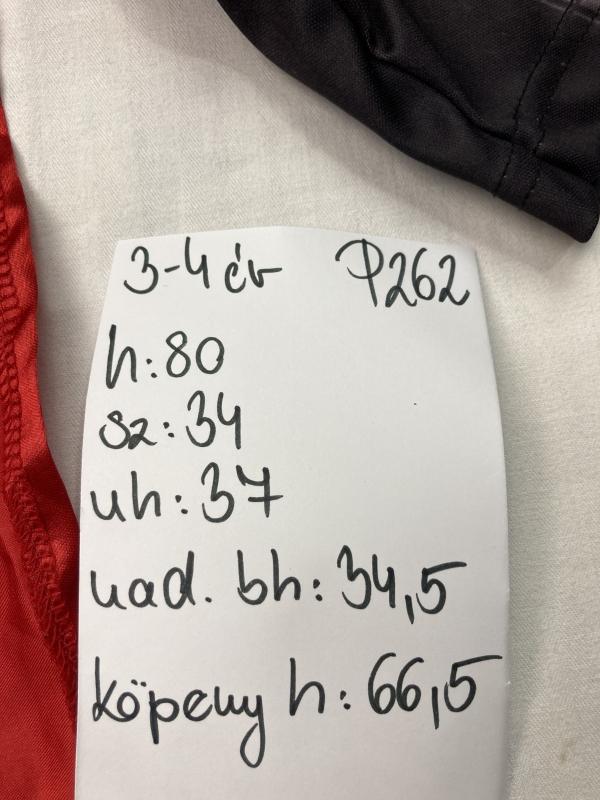 3-4 év P262
h: 80
sz: 34
uh: 37
nad. bh: 34,5
köpeny h: 66,5